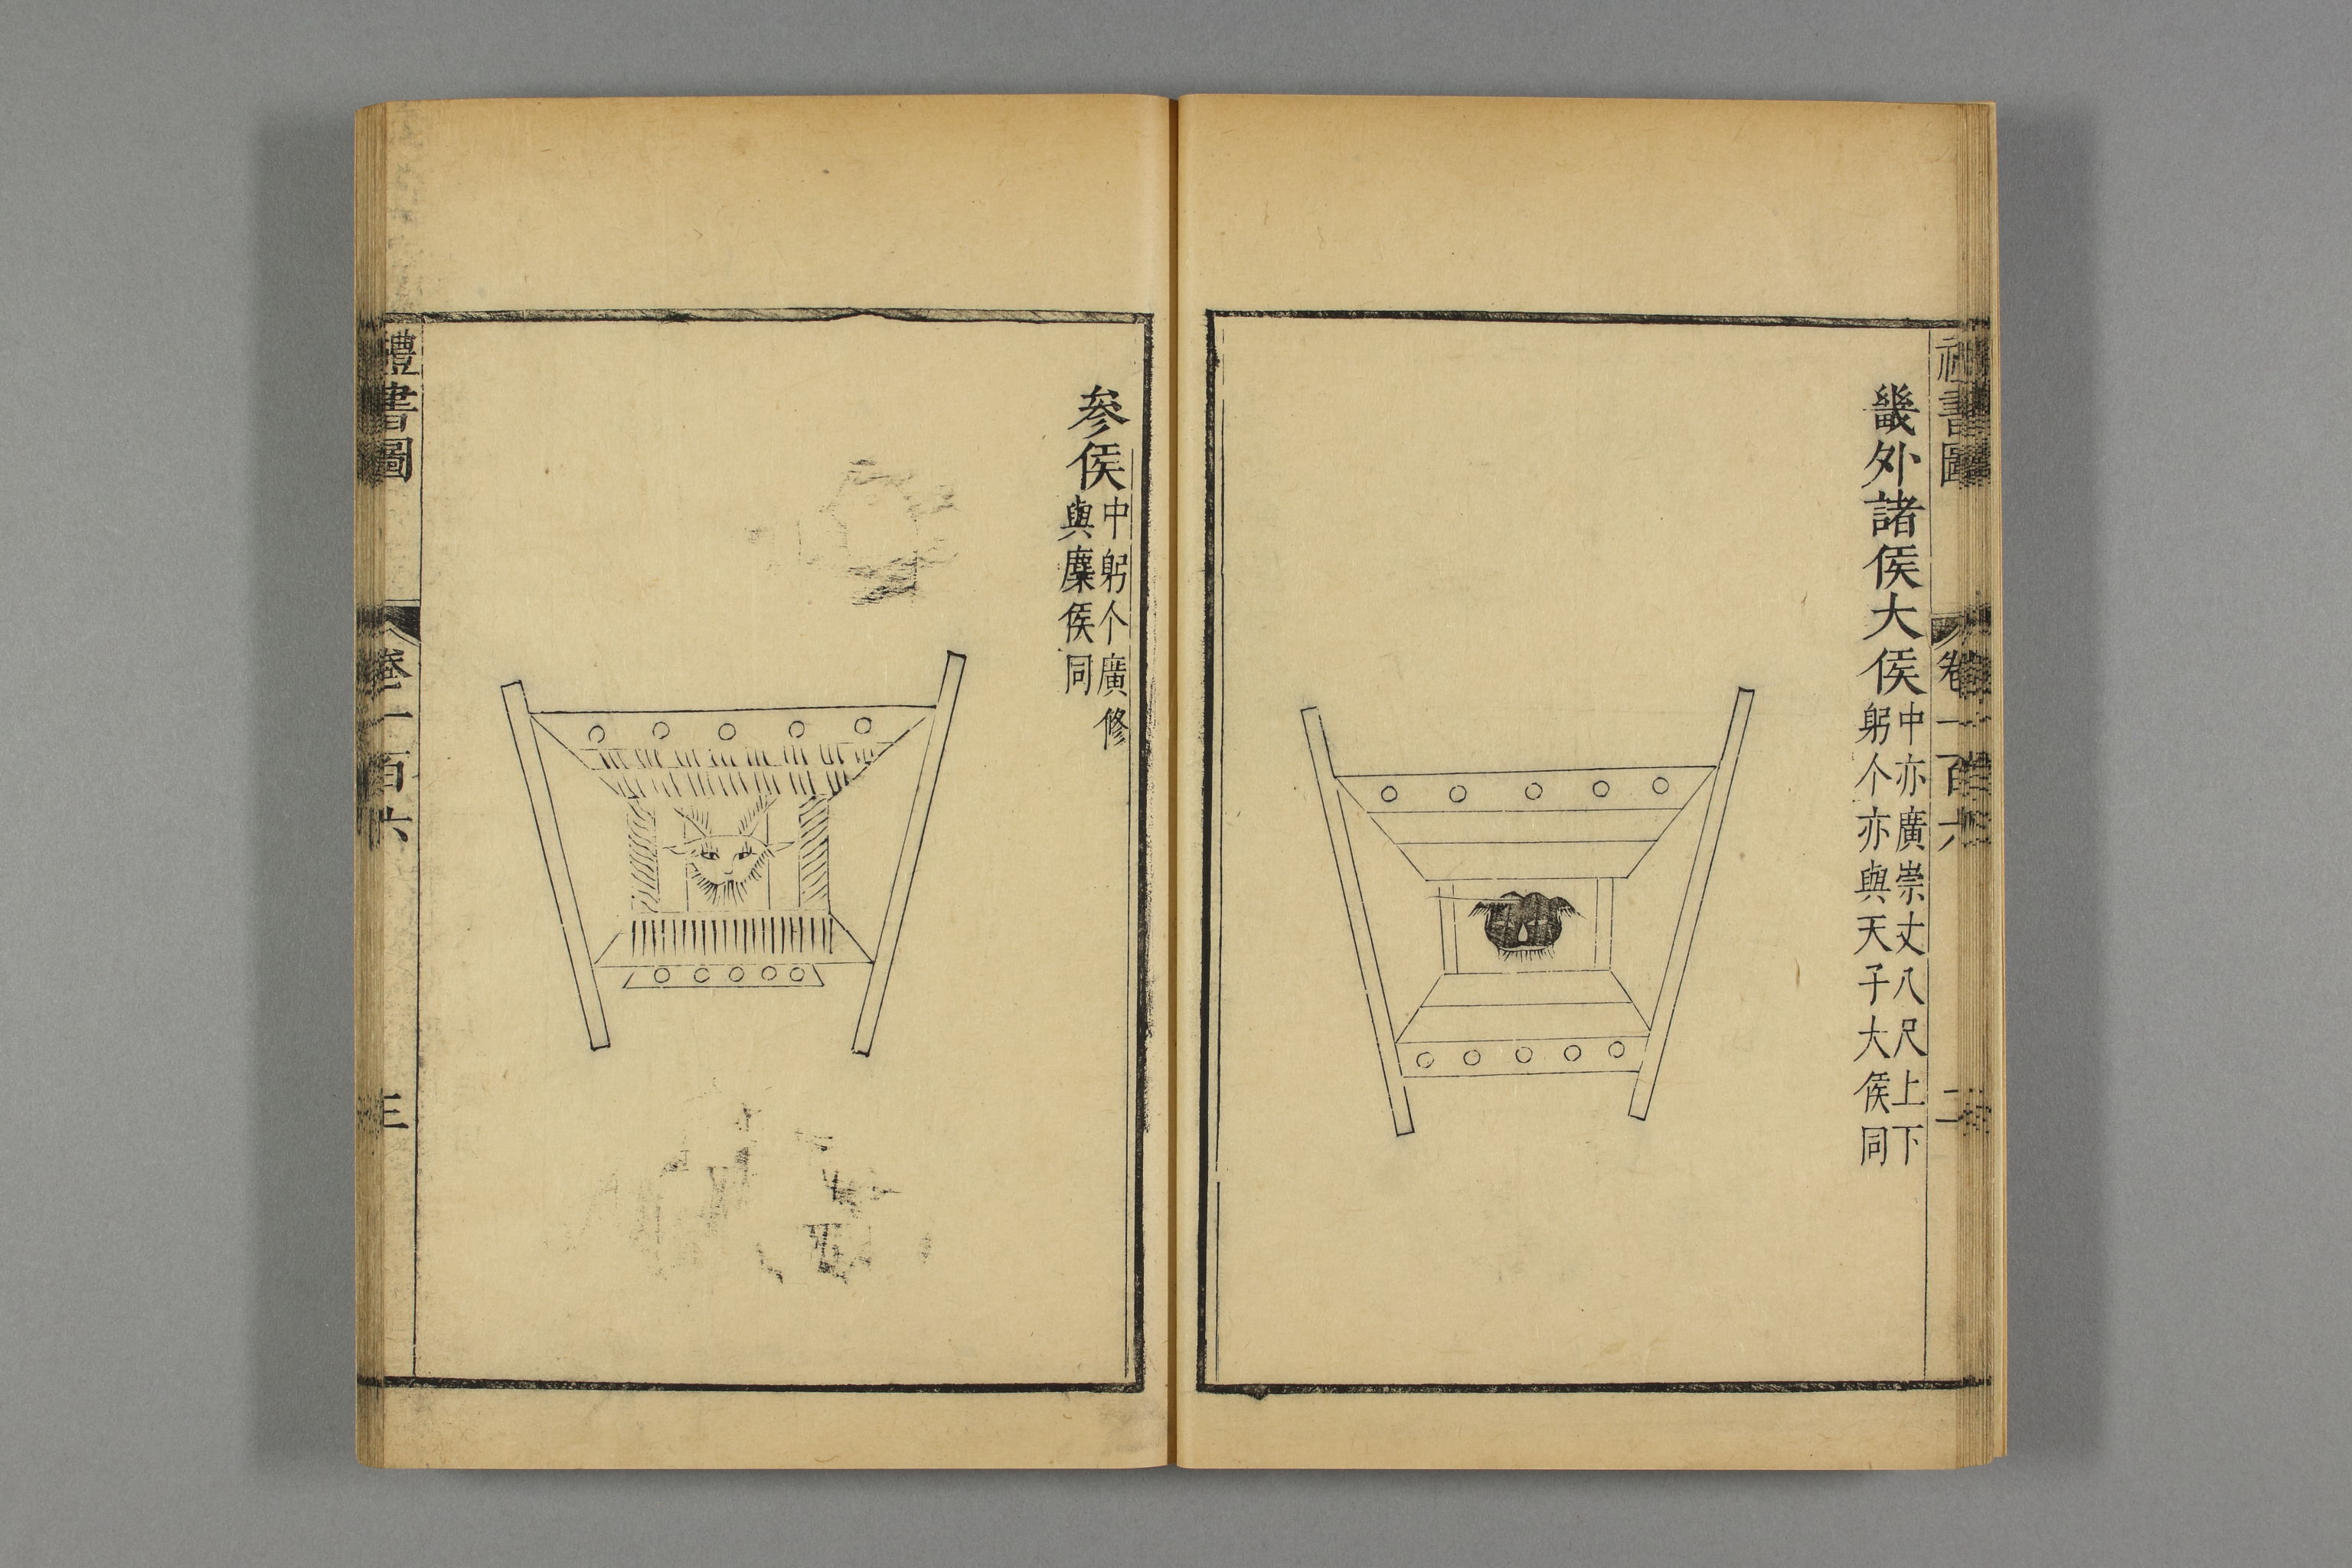 禮書圖 卷一百六 二
畿外諸侯大侯
中亦廣崇丈八尺上下
躬个亦與天子大侯同
參侯
中躬个廣修
與麋侯同
禮書圖 卷一百六 三